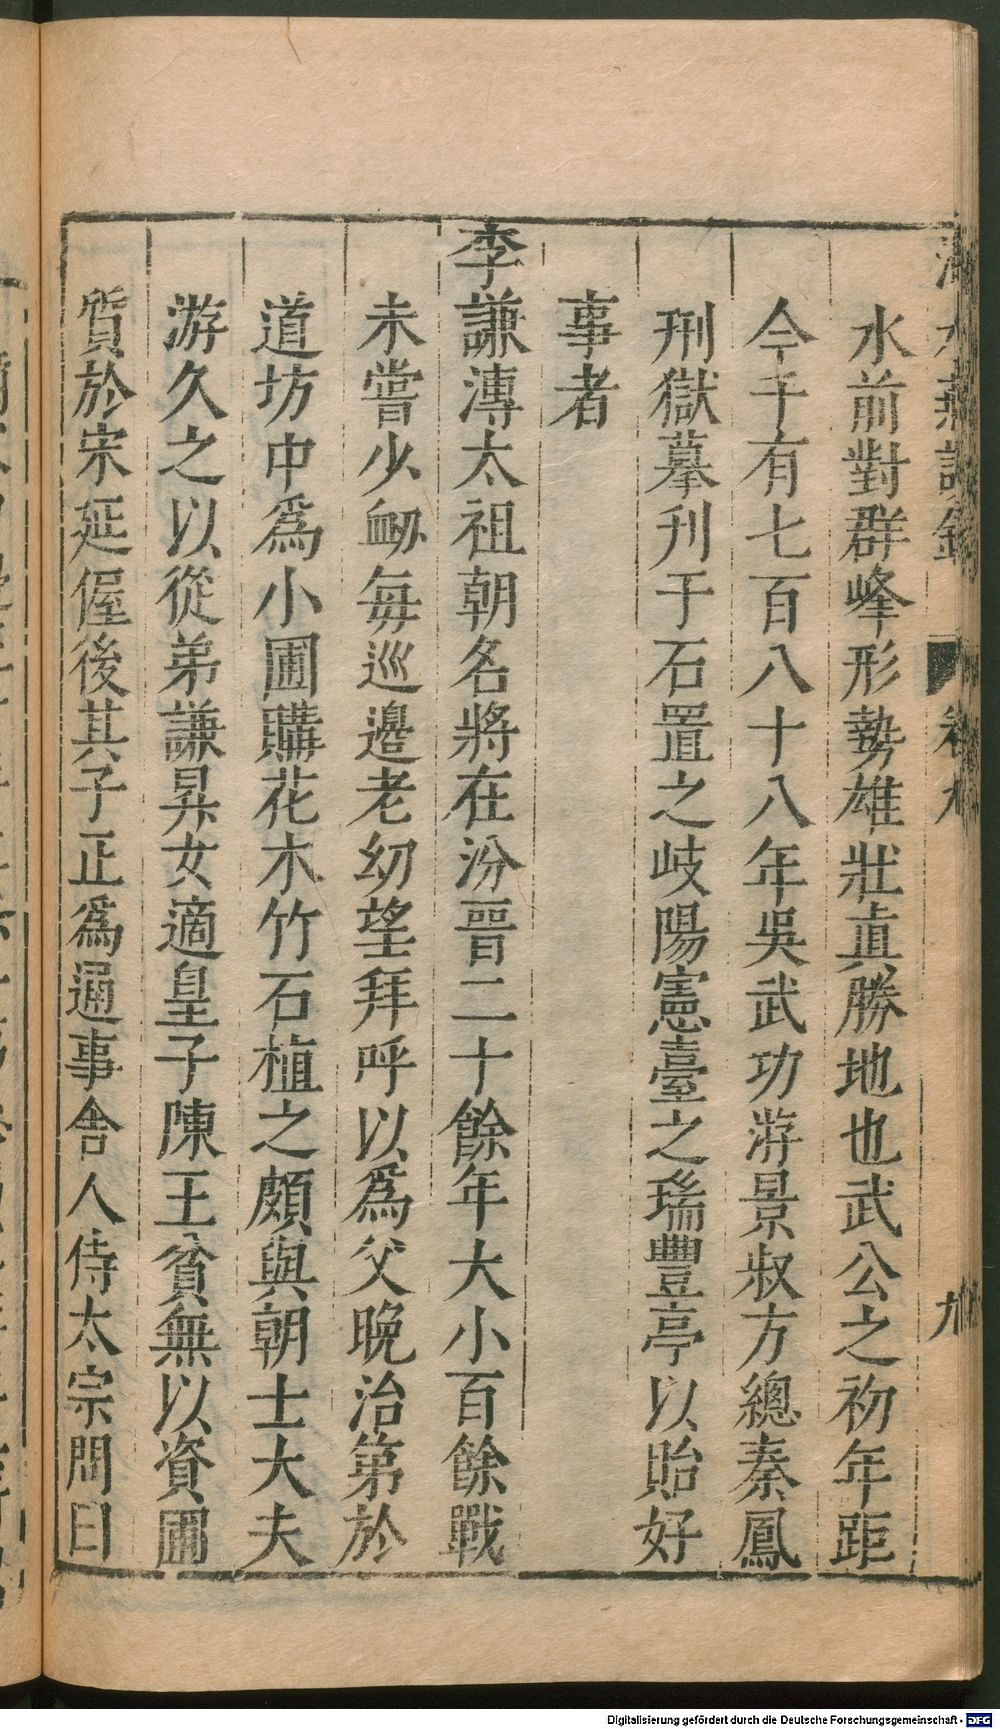 水前對群峰形勢雄壯眞勝地也武公之初年距
今千有七百八十八年吳武功游景叔方總秦鳳
刑獄摹刋于石置之岐陽憲臺之瑞豐亭以貽好
事者
李謙溥太祖朝名將在汾晉二十餘年大小百餘戰
未嘗少衂每巡邉老幼望拜呼以爲父晩治第於
道坊中爲小圃購花木竹石植之頗與朝士大夫
游久之以從弟謙昇女適皇子陳王貧無以資圃
質於宋延偓後其子正爲通事舍人侍太宗問曰
卷九
九
Digitalisierung gefördert durch die Deutsche Forschungsgemeinschaft - DFG